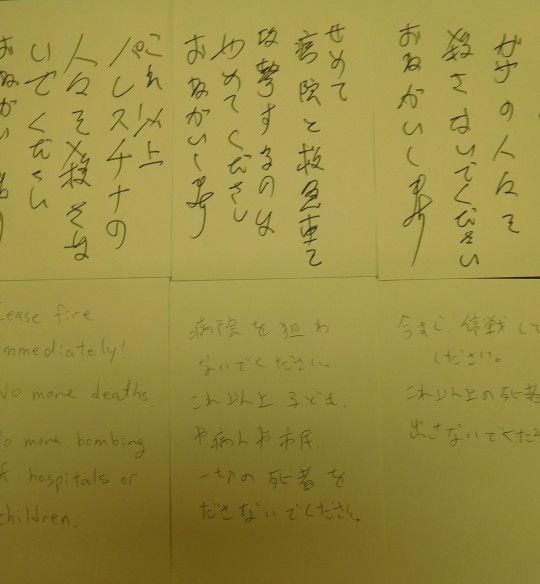 ガザの人々を
殺さないでください
おねがいします
せめて
病院と救急車を
攻撃するのは
やめてください
おねがいします
これ以上
パレスチナの
人々を殺さな
いでください
おねがいします
cease fire
immediately!
No more deaths.
No more bombing
of hospitals or
children.
病院を狙わ
ないでください。
これ以上子ども、
や病人や市民、
一切の死者を
ださないでください。
今すぐ、停戦して
ください。
これ以上の死者
出さないでくださ